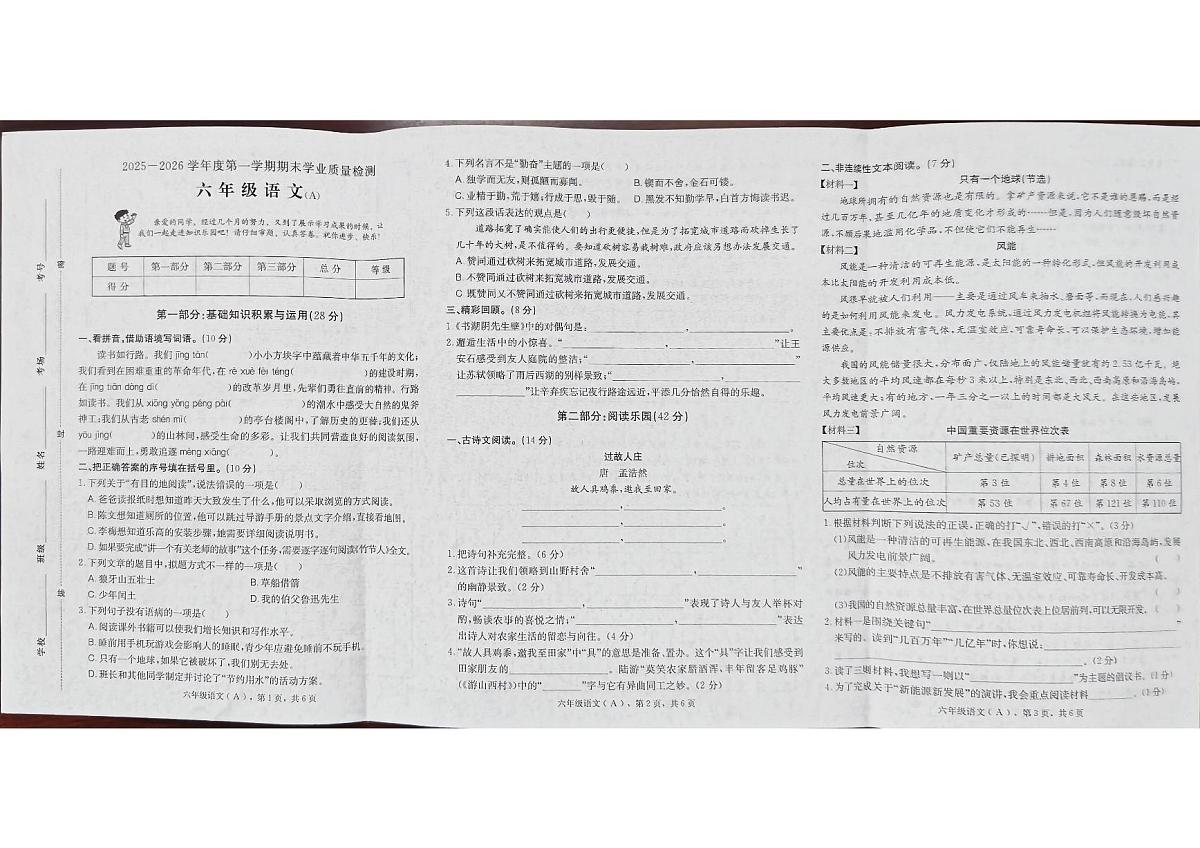 2025－2026学年度第一学期期末学业质量检测
六年级语文(A)
亲爱的同学，经过几个月的努力，又到了展示学习成果的时候，让
我们一起走进知识乐园吧！请仔细审题，认真答卷。祝你进步、快乐！
题号 第一部分 第二部分 第三部分 总分 等级
得分
第一部分：基础知识积累与运用(28分)
一、看拼音，借助语境写词语。(10分)
读书如行路。我们jīng tàn( )小小方块字中蕴藏着中华五千年的文化；
我们看到在困难重重的革命年代，在rè xuè fèi téng( )的建设时期，
在jīng tiān dòng dì( )的改革岁月里，先辈们勇往直前的精神。行路
如读书。我们从xiōng yǒng péng pài( )的潮水中感受大自然的鬼斧
神工；我们从古老shén mì( )的亭台楼阁中，了解历史的更替；我们还从
yōu jìng( )的山林间，感受生命的多彩。让我们共同营造良好的阅读氛围，
一路迎难而上，勇敢追逐mèng xiǎng( )。
二、把正确答案的序号填在括号里。(10分)
1.下列关于“有目的地阅读”，说法错误的一项是( )
A.爸爸读报纸时想知道昨天大致发生了什么，他可以采取浏览的方式阅读。
B.陈文想知道厕所的位置，他可以跳过导游手册的景点文字介绍，直接看地图。
C.李梅想知道乐高的安装步骤，她需要详细阅读说明书。
D.如果要完成“讲一个有关老师的故事”这个任务，需要逐字逐句阅读《竹节人》全文。
2.下列文章的题目中，拟题方式不一样的一项是( )
A.狼牙山五壮士 B.草船借箭
C.少年闰土 D.我的伯父鲁迅先生
3.下列句子没有语病的一项是( )
A.阅读课外书籍可以使我们增长知识和写作水平。
B.睡前用手机玩游戏会影响人的睡眠，青少年应避免睡前不玩手机。
C.只有一个地球，如果它被破坏了，我们别无去处。
D.班长和其他同学制定并讨论了“节约用水”的活动方案。
六年级语文(A)，第1页，共6页
学校 班级 姓名 考场 考号
线 封 密
4.下列名言不是“勤奋”主题的一项是( )
A.独学而无友，则孤陋而寡闻。 B.锲而不舍，金石可镂。
C.业精于勤，荒于嬉；行成于思，毁于随。 D.黑发不知勤学早，白首方悔读书迟。
5.下列这段话表达的观点是( )
道路拓宽了确实能使人们的出行更便捷，但是为了拓宽城市道路而砍掉生长了
几十年的大树，是不值得的。要知道砍树容易栽树难，政府应该另想办法发展交通。
A.赞同通过砍树来拓宽城市道路，发展交通。
B.不赞同通过砍树来拓宽城市道路，发展交通。
C.既赞同又不赞同通过砍树来拓宽城市道路，发展交通。
三、精彩回顾。(8分)
1.《书湖阴先生壁》中的对偶句是：________，________。
2.邂逅生活中的小惊喜。“________，________”让王
安石感受到友人庭院的整洁；“________，________”
让苏轼领略了雨后西湖的别样景致；“________，
________”让辛弃疾忘记夜行路途远近，平添几分怡然自得的乐趣。
第二部分：阅读乐园(42分)
一、古诗文阅读。(14分)
过故人庄
唐 孟浩然
故人具鸡黍，邀我至田家。
________，________。
________，________。
________，________。
1.把诗句补充完整。(6分)
2.这首诗让我们领略到山野村舍“________，________”
的幽静景致。(2分)
3.诗句“________，________”表现了诗人与友人举杯对
酌，畅谈农事的喜悦之情；“________，________”表达
出诗人对农家生活的留恋与向往。(4分)
4.“故人具鸡黍，邀我至田家”中“具”的意思是准备、置办。这个“具”字让我们感受到
田家朋友的________。陆游“莫笑农家腊酒浑，丰年留客足鸡豚”
(《游山西村》)中的“______”字与它有异曲同工之妙。(2分)
六年级语文(A)，第2页，共6页
二、非连续性文本阅读。(7分)
【材料一】
只有一个地球(节选)
地球所拥有的自然资源也是有限的。拿矿产资源来说，它不是谁的恩赐，而是经
过几百万年，甚至几亿年的地质变化才形成的……但是，因为人们随意毁坏自然资
源，不顾后果地滥用化学品，不但使它们不能再生……
【材料二】
风能
风能是一种清洁的可再生能源，是太阳能的一种转化形式，但风能的开发利用成
本比太阳能的开发利用成本低。
风很早就被人们利用——主要是通过风车来抽水、磨面等，而现在，人们感兴趣
的是如何利用风能来发电。风力发电系统，通过风力发电机组将风能转换为电能，其
主要优点是：不排放有害气体，无温室效应，可靠寿命长，可以保护生态环境，增加能
源供应。
我国的风能储量很大，分布面广，仅陆地上的风能储量就有约2.53亿千瓦，绝
大多数地区的平均风速都在每秒3米以上，特别是东北、西北、西南高原和沿海岛屿，
平均风速更大；有的地方，一年三分之一以上的时间都是大风天。在这些地区，发展
风力发电前景广阔。
【材料三】
中国重要资源在世界位次表
自然资源 位次 矿产总量(已探明) 耕地面积 森林面积 水资源总量
总量在世界上的位次 第3位 第4位 第8位 第6位
人均占有量在世界上的位次 第53位 第67位 第121位 第110位
1.根据材料判断下列说法的正误，正确的打“√”，错误的打“×”。(3分)
(1)风能是一种清洁的可再生能源，在我国东北、西北、西南高原和沿海岛屿，发展
风力发电前景广阔。 ( )
(2)风能的主要特点是不排放有害气体、无温室效应、可靠寿命长、开发成本高。
( )
(3)我国的自然资源总量丰富，在世界总量位次表上位居前列，可以无限开发。 ( )
2.材料一是围绕关键句“________”
来写的。读到“几百万年”“几亿年”时，你想说：________
________。(2分)
3.读了三则材料，我想写一则以“________”为主题的倡议书。(1分)
4.为了完成关于“新能源新发展”的演讲，我会重点阅读材料________。(1分)
六年级语文(A)，第3页，共6页